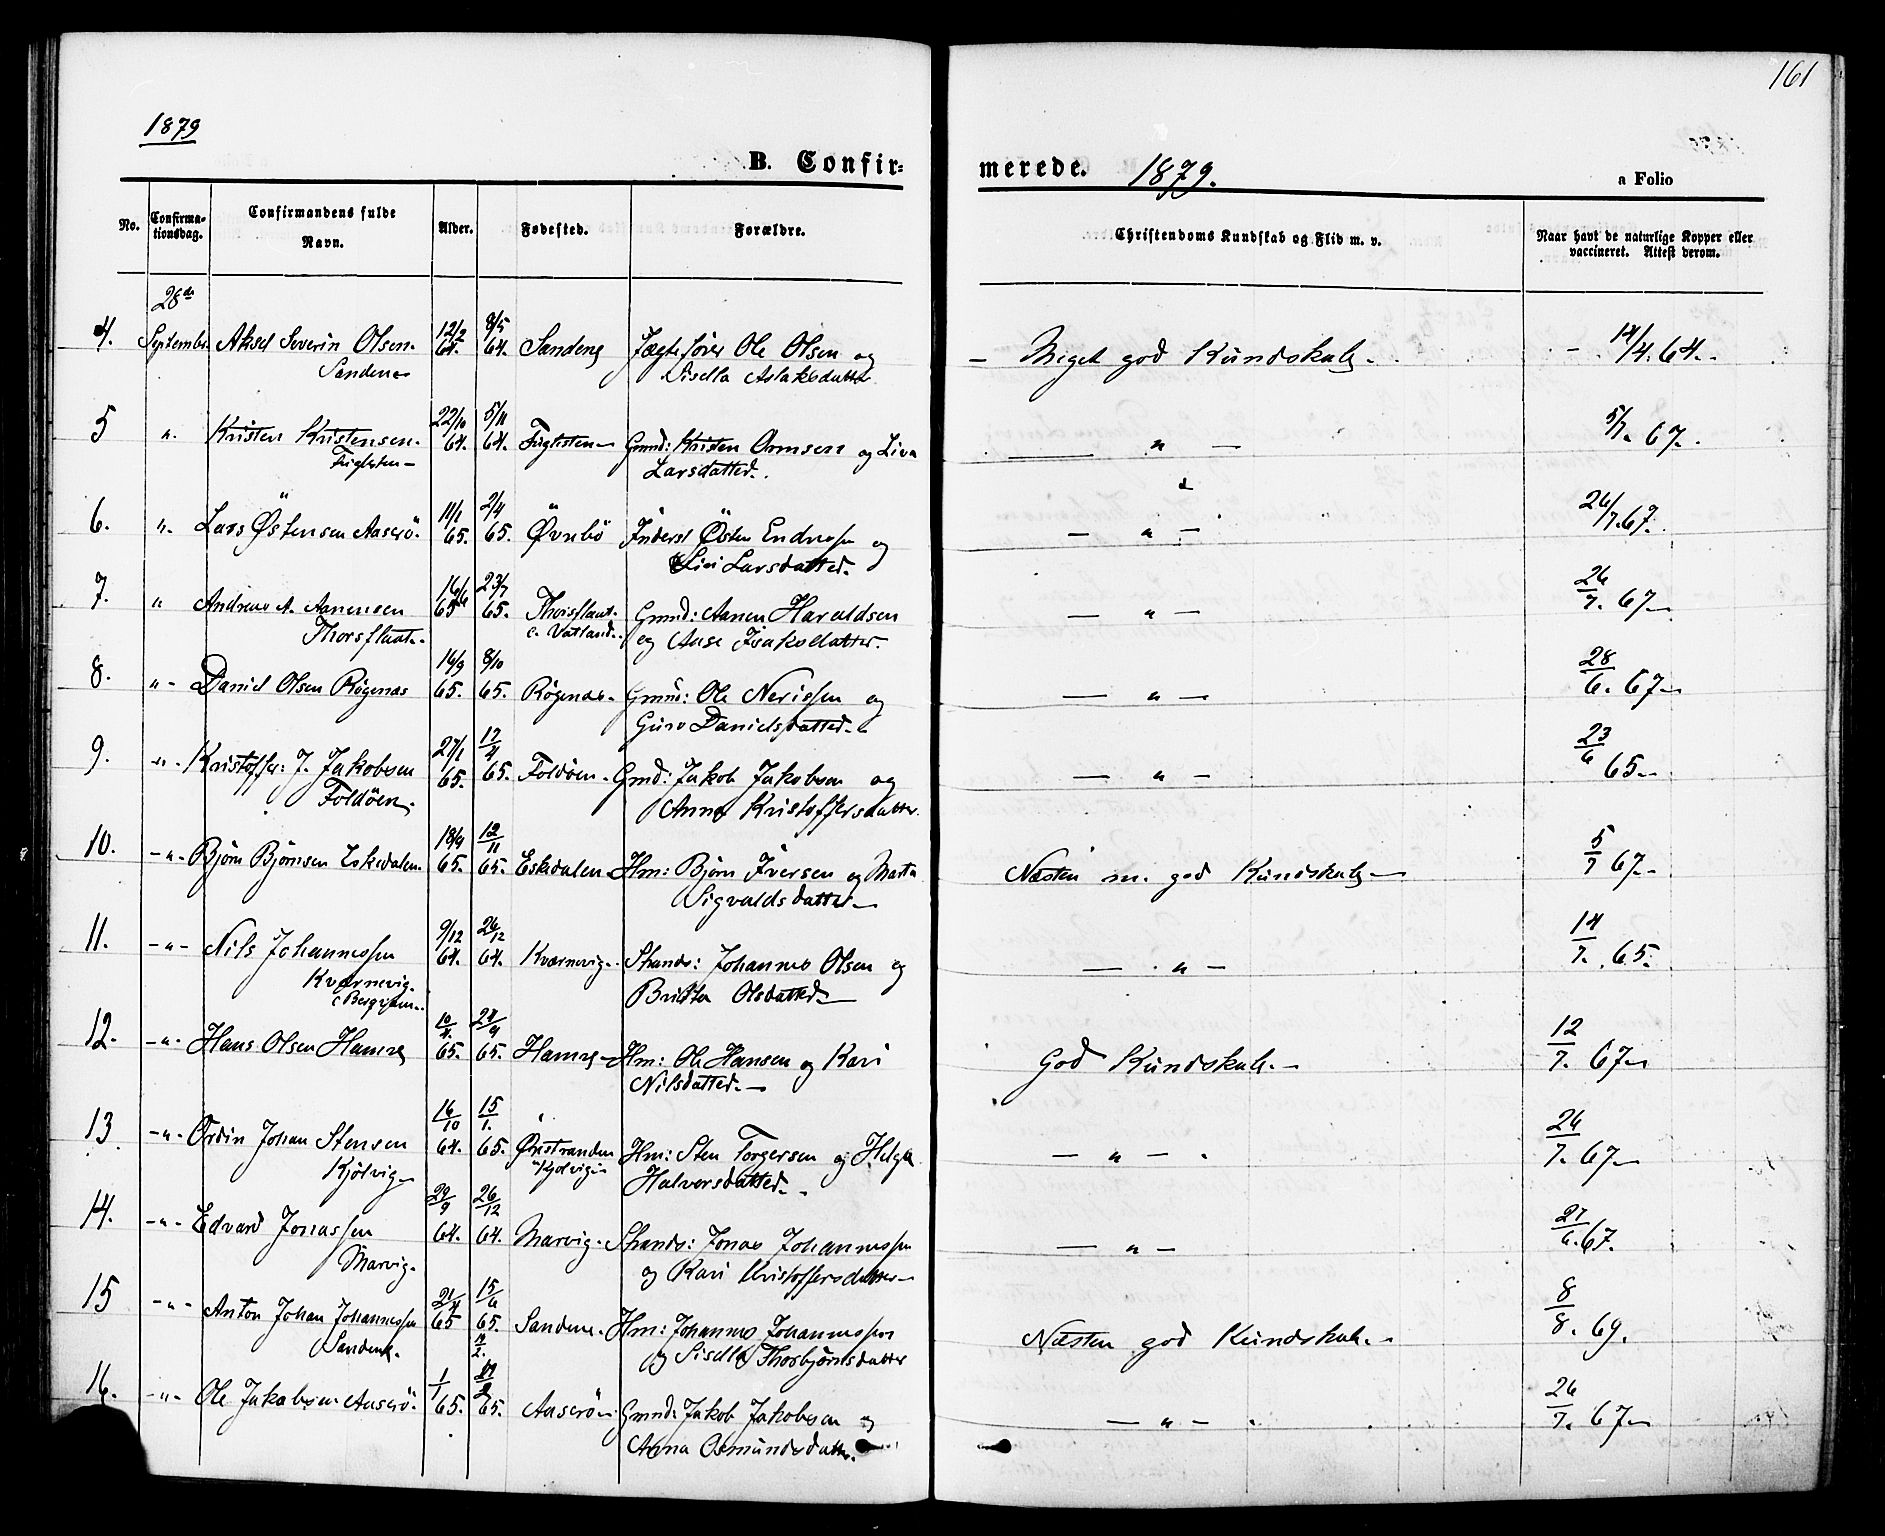 161
1879
B. Confir=
merede. 1879.
a Folio
No.
Confirma-
tionsdag.
Confirmandens fulde
Navn.
Alder.
Fødested.
Forældre.
Christendoms Kundskab og Flid m. v.
Naar havt de naturlige Kopper eller
vaccineret. Attest derom.
28de
4. September Aksel Severin Olsen 12/2 64. 8/5 64. Sandene Jægtefører Ole Olsen og — Meget god Kundskab — 14/4. 64.
Sandenes Sisella Aslaksdatter
5 " Kristen Kristensen 22/10 64. 5/11 64. Fuglesten Grmd: Kristen Ormsen og Liva — " — 5/7. 67.
Fuglesten Larsdatter.
6. " Lars Östensen Aaserö. 11/1 65. 2/4 65. Övrebö Inderst Östen Endresen og — " — 26/7. 67.
Livi Larsdatter.
7. " Andreas A. Aanensen 16/6 65 23/7 65. Thorsflaat Grmd: Aanen Haraldsen — " — 26/7. 67
Thorsflaat. Vatland og Aase Isaksdatter.
8. " Daniel Olsen Rögenæs 16/9 65. 8/10 65. Rögenæs Grmd: Ole Nerissen og — " — 28/6. 67
Guro Danielsdatter
9. " Kristoffer J. Jakobsen 27/1 65. 17/4 65. Foldöen Gmd: Jakob Jakobsen og — " — 23/6 65
Foldöen Anna Kristoffersdatter
10. " Björn Björnsen Eskedalen 18/9 65. 12/11 65. Eskedalen Hm: Björn Iversen og Marta Næsten m. god Kundskab — 5/7 67
Sigvaldsdatter
11. " Nils Johannessen 9/12 64. 26/12 64. Kværnevig Strands: Johannes Olsen og — " — 14/7. 65.
Kværnevig. Britta Olsdatter
12. " Hans Olsen Hamre 10/4 65. 24/9 65. Hamre Hm: Ole Hansen og Kari God Kundskab. — 12/7. 67
Nilsdatter.
13 " Ordin Johan Stensen 16/10 64. 15/1. 65. Östranden Hm: Sten Torgersen og Helga — " — 26/7. 67
Kjölvig Kjölvig Halvorsdatter.
14. " Edvard Jonassen 29/9 64. 26/12 64. Marvig Strands: Jonas Johannessen — " — 27/6. 67.
Marvig. og Kari Kristoffersdatter
15 " Anton Johan Johannessen 21/4 65 15/6 65. Sandene Hm: Johannes Johannessen Næsten god Kundskab. — 8/8. 69.
Sandene. og Sisella Thorbjörnsdatter
16. " Ole Jakobsen Aaserö 1/1 65. 65. Aaserö Grmd: Jakob Jakobsen og — " — 26/7. 67
Anna Osmundsdatter.